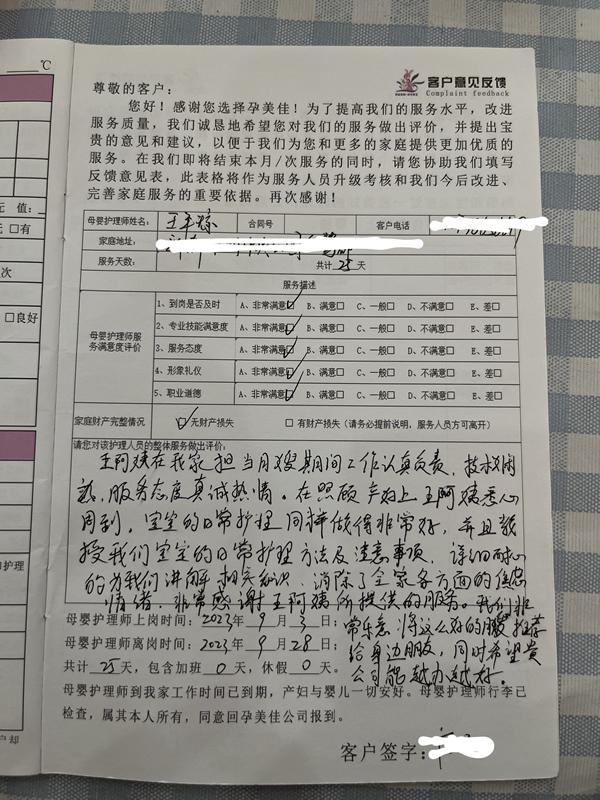 ℃
客户意见反馈
Complaint feedback
尊敬的客户：
您好！感谢您选择孕美佳！为了提高我们的服务水平，改进
服务质量，我们诚恳地希望您对我们的服务做出评价，并提出宝
贵的意见和建议，以便于我们为您和更多的家庭提供更加优质的
服务。在我们即将结束本月/次服务的同时，请您协助我们填写
反馈意见表，此表格将作为服务人员升级考核和我们今后改进、
完善家庭服务的重要依据。再次感谢！
母婴护理师姓名： 合同号 客户电话
家庭地址：
服务天数： 共计25天
服务描述
母婴护理师服务满意度评价
1、到岗是否及时 A、非常满意☑ B、满意□ C、一般□ D、不满意□ E、差□
2、专业技能满意度 A、非常满意☑ B、满意□ C、一般□ D、不满意□ E、差□
3、服务态度 A、非常满意☑ B、满意□ C、一般□ D、不满意□ E、差□
4、形象礼仪 A、非常满意☑ B、满意□ C、一般□ D、不满意□ E、差□
5、职业道德 A、非常满意☑ B、满意□ C、一般□ D、不满意□ E、差□
家庭财产完整情况 ☑无财产损失 □有财产损失（请务必提前说明，服务人员方可离开）
请您对该护理人员的整体服务做出评价：
王阿姨在我家担当月嫂期间工作认真负责，技术娴
熟，服务态度真诚热情。在照顾产妇上王阿姨悉心
周到，宝宝的日常护理同样做得非常好，并且教
授我们宝宝的日常护理方法及注意事项，详细耐心
的为我们讲解相关知识，消除了全家各方面的焦虑
情绪，非常感谢王阿姨所提供的服务。我们非
常乐意将这么好的服务推荐
给身边朋友，同时希望贵
公司能越办越好。
母婴护理师上岗时间：2023年9月3日；
母婴护理师离岗时间：2023年9月28日；
共计25天，包含加班0天，休假0天。
母婴护理师到我家工作时间已到期，产妇与婴儿一切安好。母婴护理师行李已
检查，属其本人所有，同意回孕美佳公司报到。
客户签字：